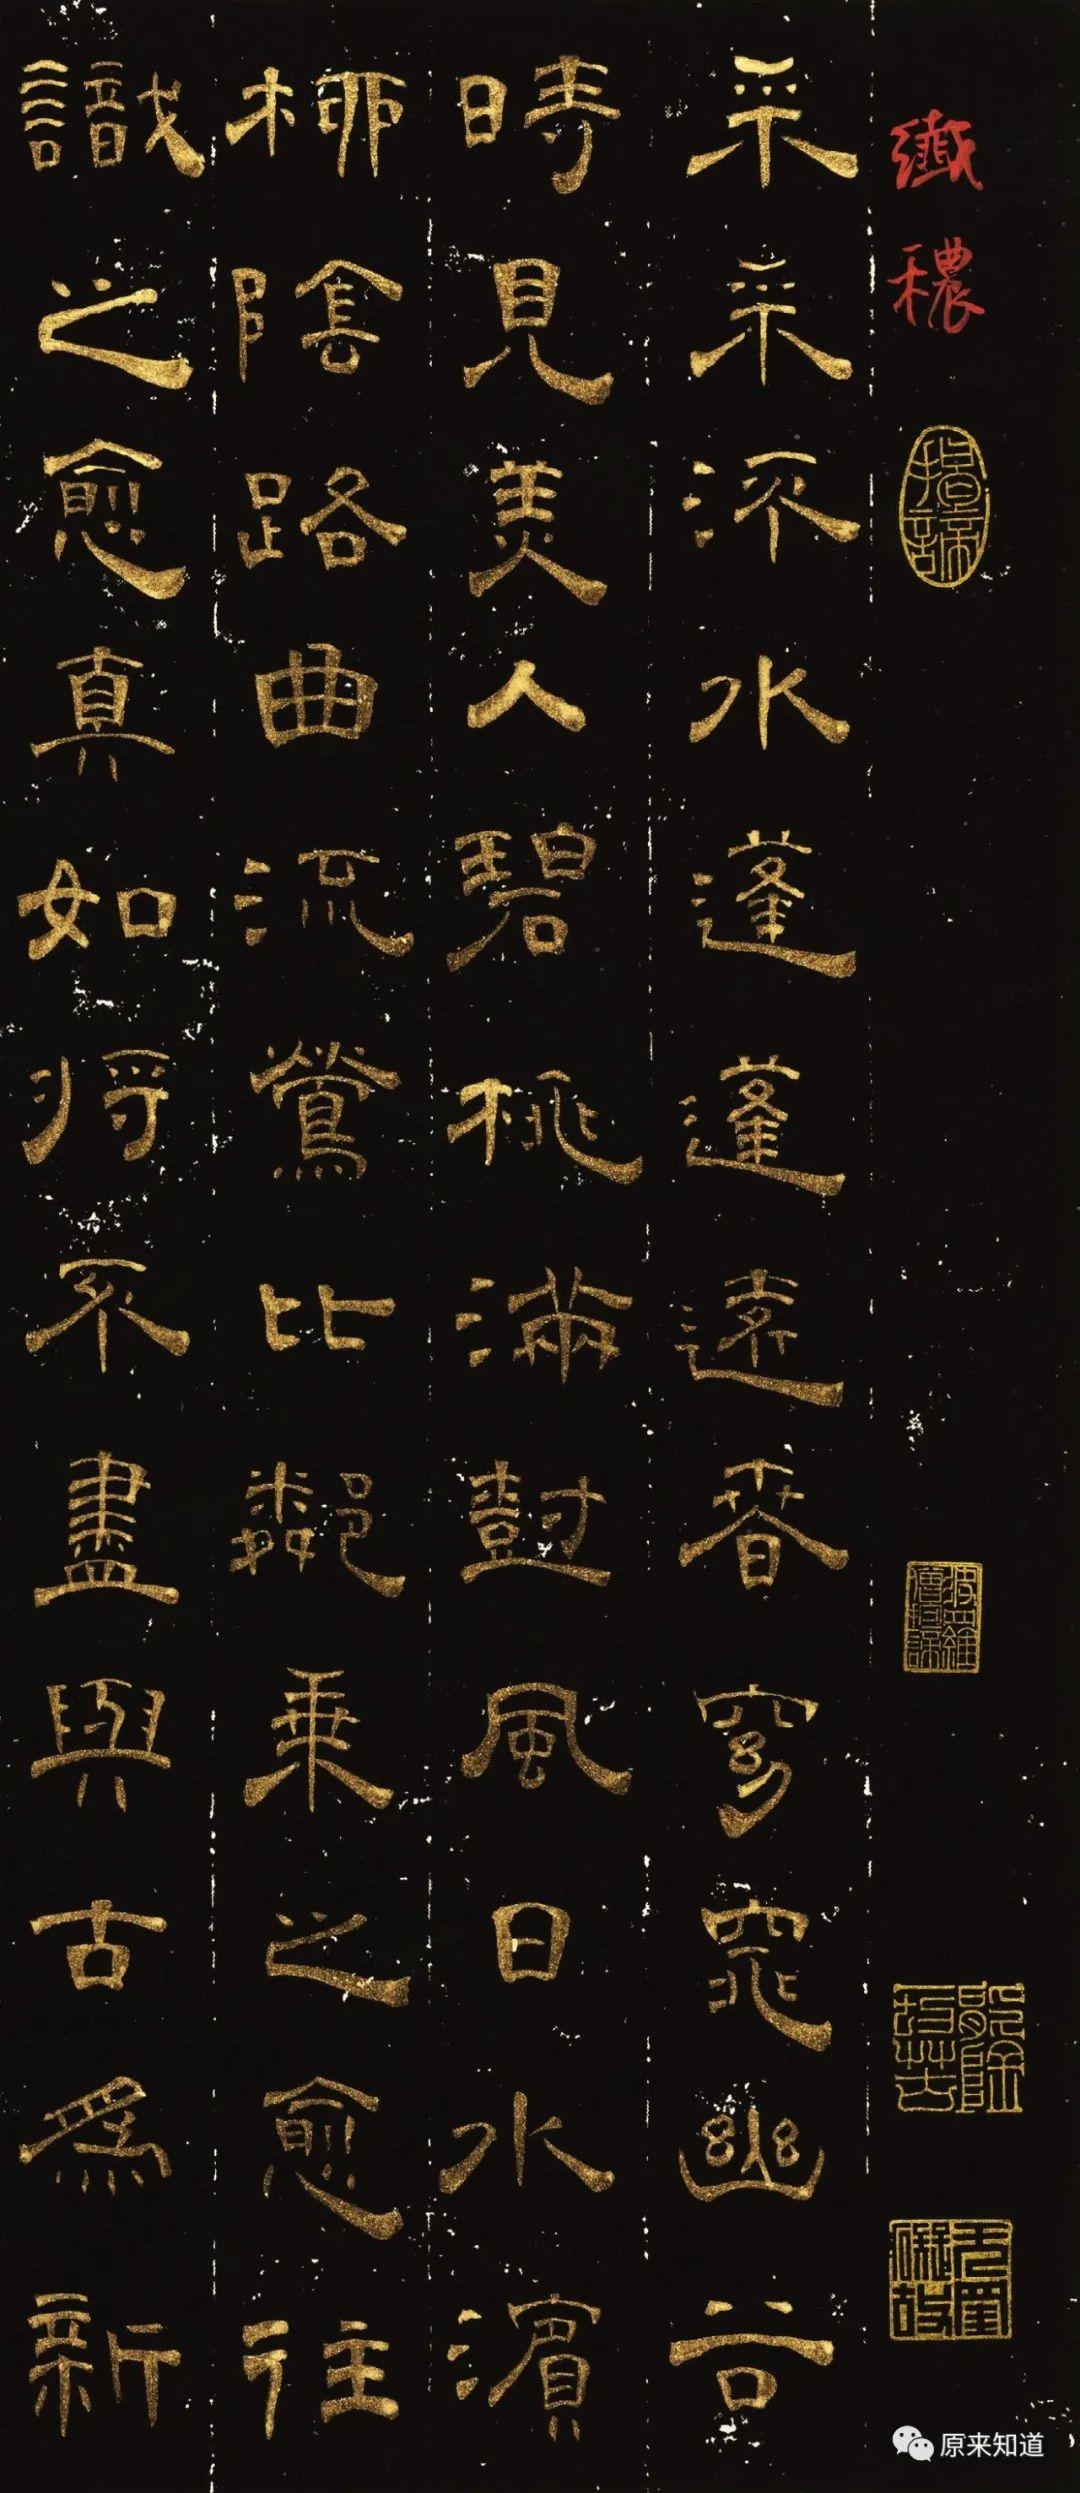 纖穠
采采流水蓬蓬遠春窈窕幽谷
時見美人碧桃滿尌風日水濱
柳陰路曲流鶯比鄰乘之愈往
識之愈真如將不盡與古為新
原来知道